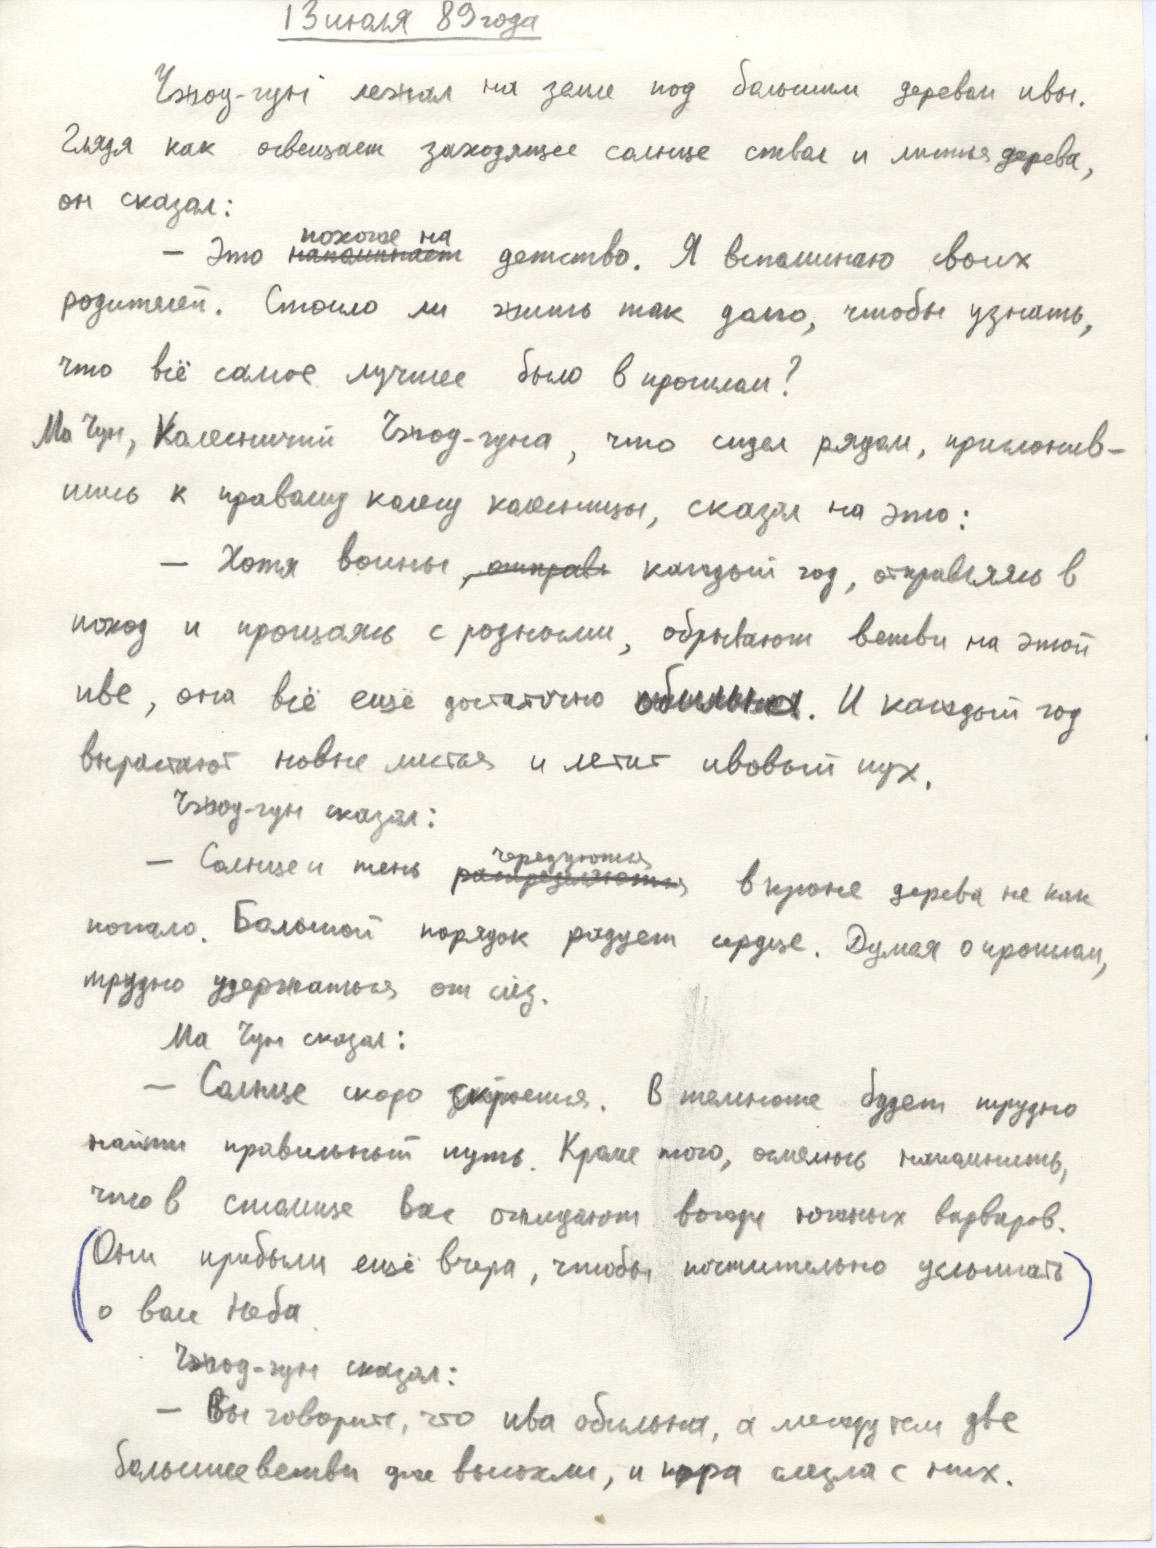 13 июля 89 года
Чжоу-гун лежал на земле под большим деревом ивы.
Глядя как освещает заходящее солнце ствол и листья дерева,
он сказал:
похоже на
— Это напоминает детство. Я вспоминаю своих
родителей. Стоило ли жить так долго, чтобы узнать,
что всё самое лучшее было в прошлом?
Ма Чун, Колесничий Чжоу-гуна, что сидел рядом, прислонив-
шись к правому колесу колесницы, сказал на это:
— Хотя воины, отправ каждый год, отправляясь в
поход и прощаясь с родными, обрывают ветви на этой
иве, она всё ещё достаточно обильна. И каждый год
вырастают новые листья и летит ивовый пух.
Чжоу-гун сказал:
чередуются
— Солнце и тень распределяются в кроне дерева не как
попало. Большой порядок радует сердце. Думая о прошлом,
трудно удержаться от слёз.
Ма Чун сказал:
— Солнце скоро скроется. В темноте будет трудно
найти правильный путь. Кроме того, осмелюсь напомнить,
что в столице Вас ожидают вожди южных варваров.
(Они прибыли ещё вчера, чтобы почтительно услышать
о воле Неба)
Чжоу-гун сказал:
— Вы говорите, что ива обильна, а между тем две
большие ветви уже высохли, и кора слезла с них.